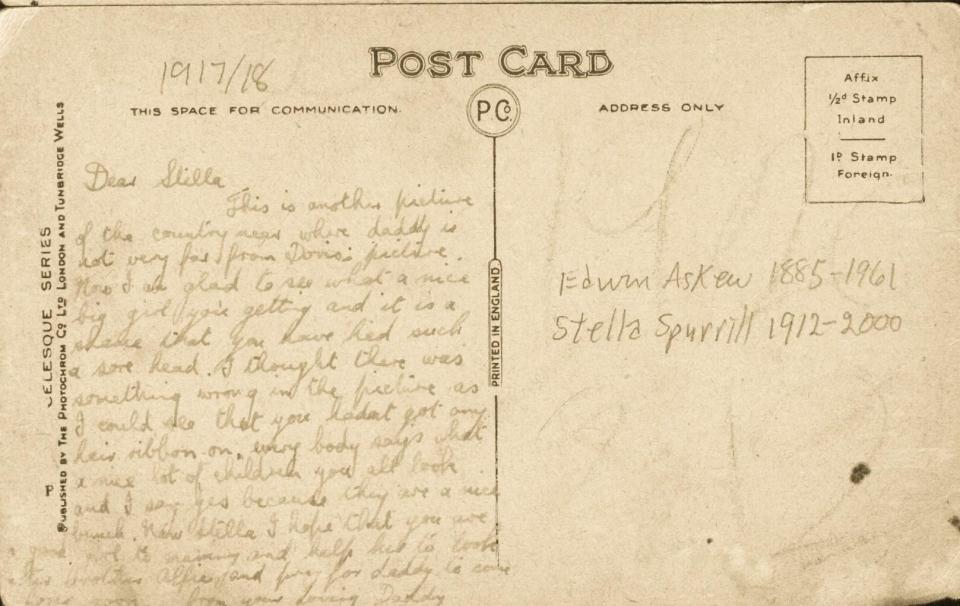 1917/18
POST CARD
P.Co.
THIS SPACE FOR COMMUNICATION.
ADDRESS ONLY
Affix
½d Stamp
Inland
1D Stamp
Foreign.
CELESQUE SERIES
PUBLISHED BY THE PHOTOCHROM CO LTD LONDON AND TUNBRIDGE WELLS
PRINTED IN ENGLAND
Dear Stella
This is another picture
of the country near where daddy is
not very far from Doris's picture.
Now I am glad to see what a nice
big girl you're getting and it is a
shame that you have had such
a sore head. I thought there was
something wrong in the picture as
I could see that you hadnt got any
hair ribbon on. every body says what
a nice lot of children you all look
and I say yes because they are a nice
bunch. Now Stella I hope that you are
a good to mammy and help her to look
after brother Alfie and pray for daddy to come
home soon from your loving Daddy
Edwin Askew 1885-1961
Stella Spurrill 1912-2000